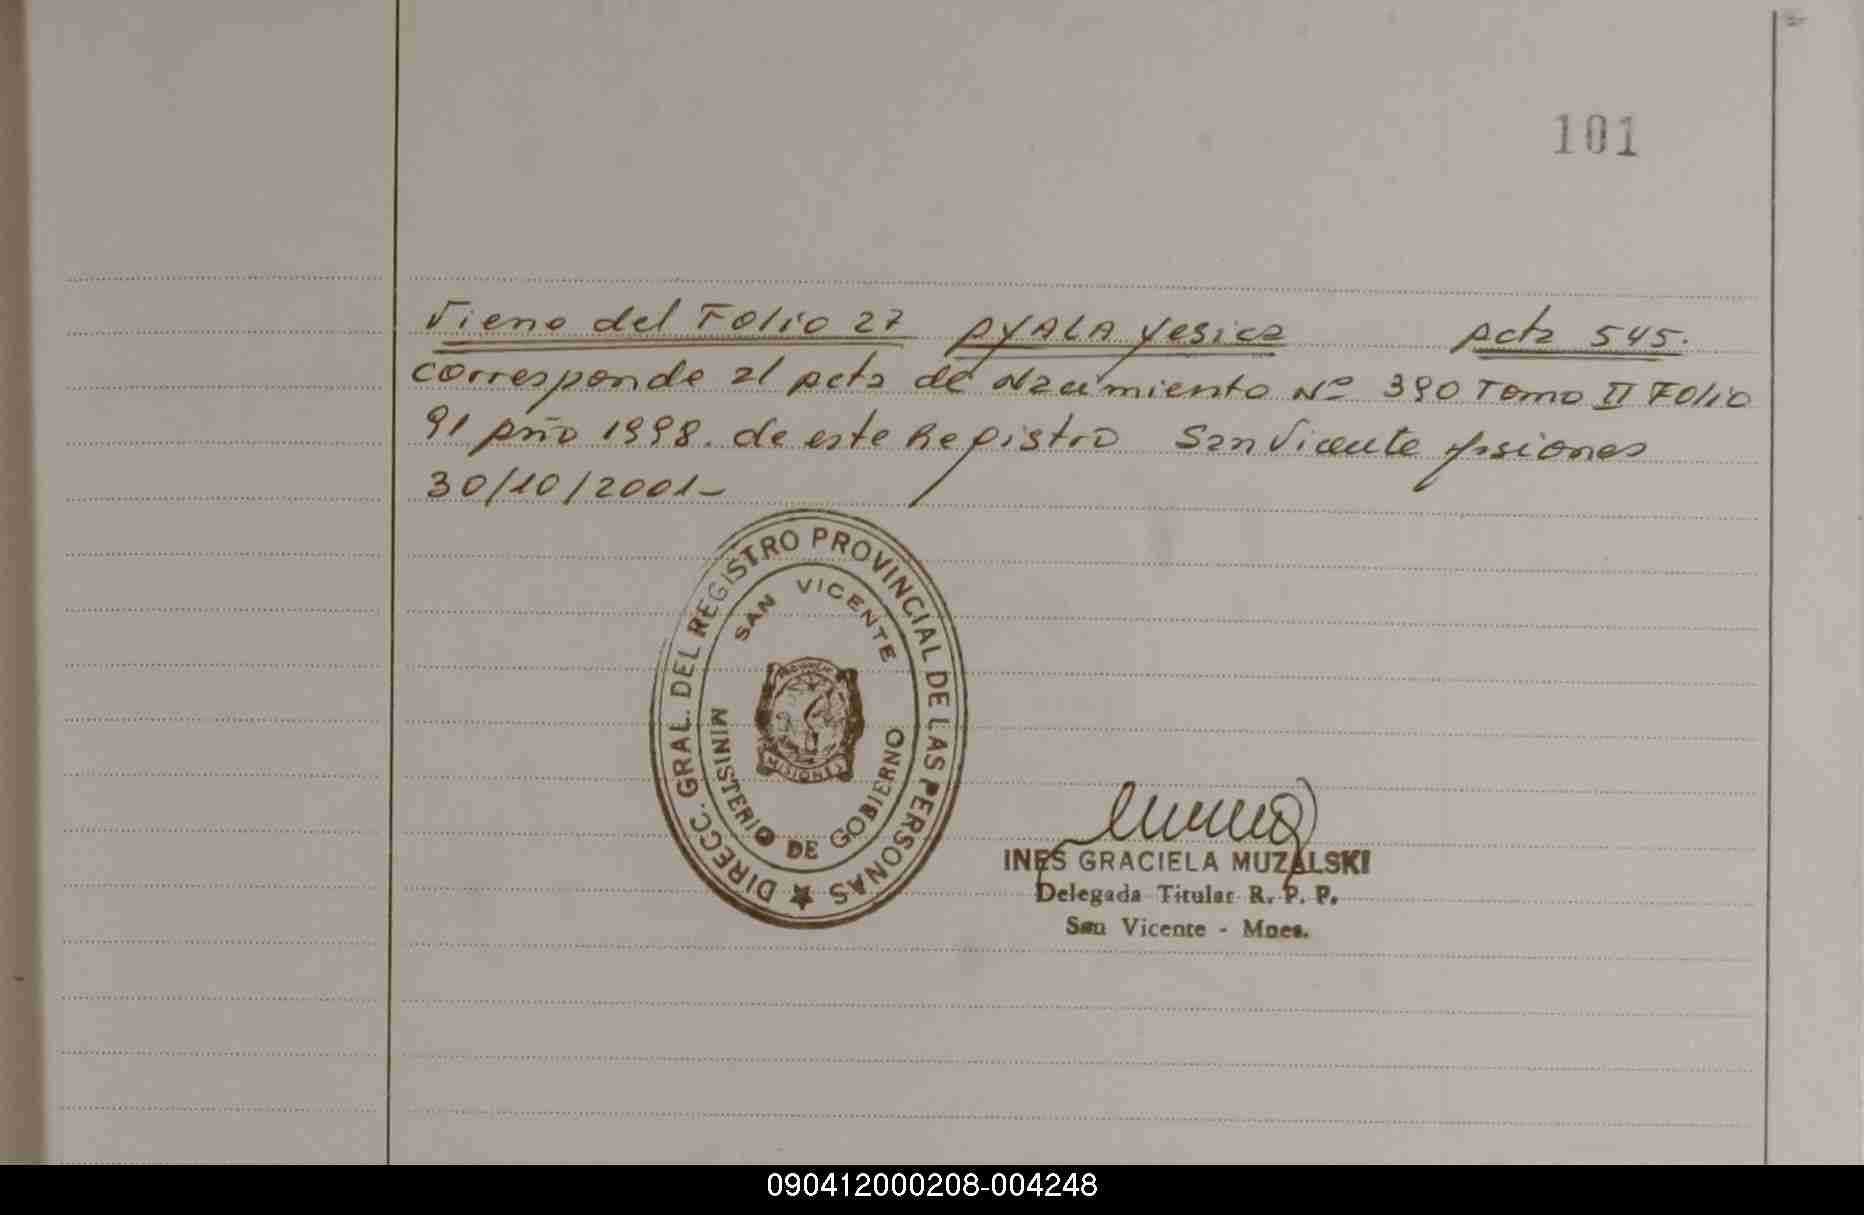 101
Viene del Folio 27 AYALA Yesica Acta 545.
corresponde al Acta de Nacimiento Nº 390 Tomo II Folio
91 Año 1998. de este Registro San Vicente Msiones
30/10/2001-
DIRECC. GRAL. DEL REGISTRO PROVINCIAL DE LAS PERSONAS
SAN VICENTE
MISIONES
MINISTERIO DE GOBIERNO
INES GRACIELA MUZALSKI
Delegada Titular R. P. P.
San Vicente - Mnes.
090412000208-004248